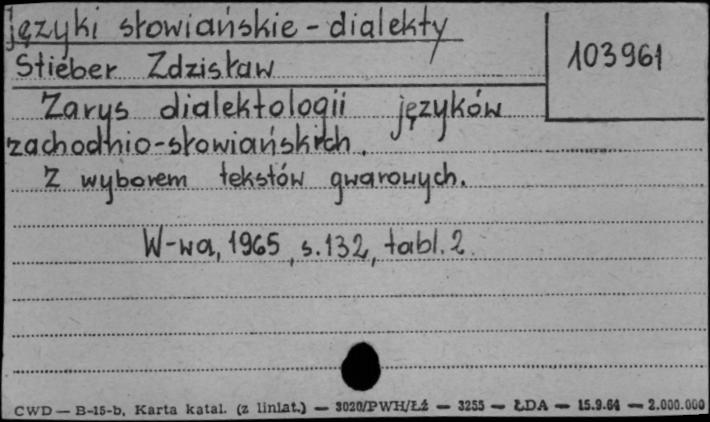 języki słowiańskie - dialekty
103961
Stieber Zdzisław
Zarys dialektologii języków
zachodnio-słowiańskich.
Z wyborem tekstów gwarowych.
W-wa, 1965, s. 132, tabl. 2.
CWD — B-15-b, Karta katal. (z liniat.) — 3020/PWH/Łź — 3255 — ŁDA — 15.9.64 — 2.000.000